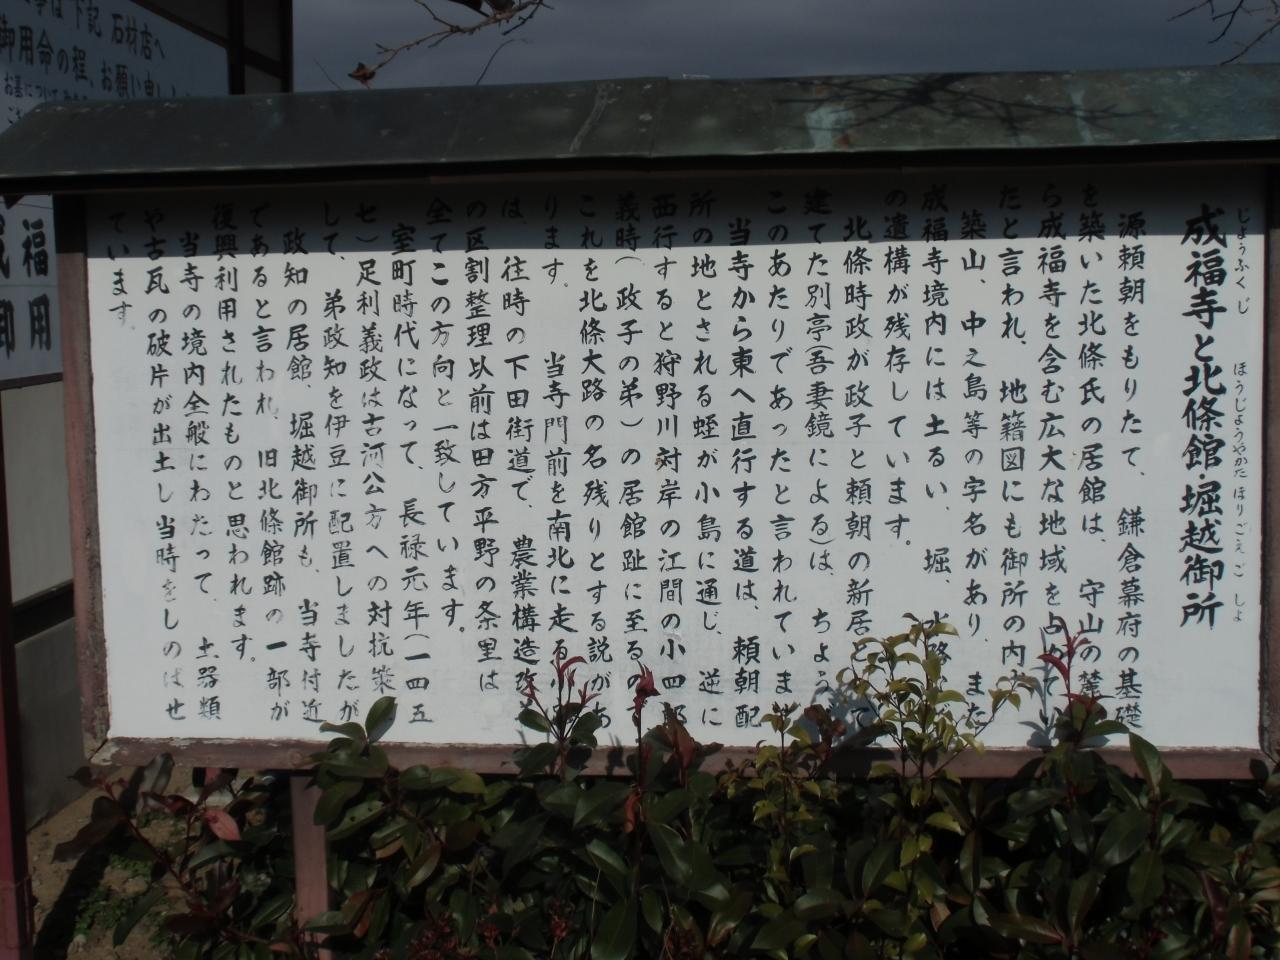 成福寺と北條館・堀越御所
じょうふくじ ほうじょうやかた ほりごえごしょ
源頼朝をもりたて、鎌倉幕府の基礎
を築いた北條氏の居館は、守山の麓
ら成福寺を含む広大な地域を占めて
たと言われ、地籍図にも御所の内、
築山、中之島等の字名があり、また
成福寺境内には土るい、堀、水路
の遺構が残存しています。
北條時政が政子と頼朝の新居として
建てた別亭(吾妻鏡による)は、ちょう
このあたりであったと言われています
当寺から東へ直行する道は、頼朝配
所の地とされる蛭が小島に通じ、逆に
西行すると狩野川対岸の江間の小四郎
義時(政子の弟)の居館趾に至るの
これを北條大路の名残りとする説があ
ります。 当寺門前を南北に走る
は、往時の下田街道で、農業構造改善
の区割整理以前は田方平野の条里は
全てこの方向と一致しています。
室町時代になって、長禄元年(一四五
七)足利義政は古河公方への対抗策
して、弟政知を伊豆に配置しましたが
政知の居館、堀越御所も、当寺付近
であると言われ、旧北條館跡の一部が
復興利用されたものと思われます。
当寺の境内全般にわたって、土器類
や古瓦の破片が出土し当時をしのばせ
ています。
は下記 石材店へ
御用命の程、お願い申し
お墓について
福
御用